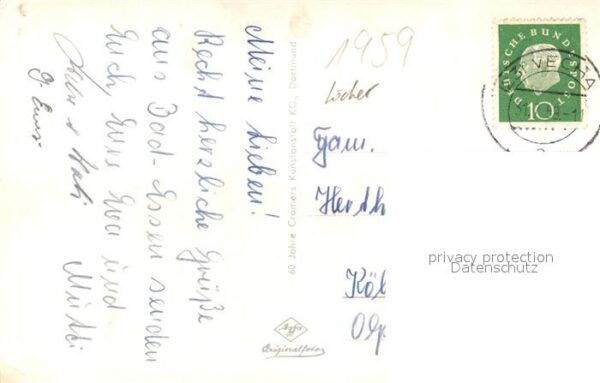 Meine Lieben!
Recht herzliche Grüße
aus Bad-Essen senden
Euch, Eure Eva und
Mutti
1959
Löcher
Fam.
Herth
Köl
Olp
60 Jahre Cramers Kunstanstalt KG., Dortmund
Agfa
Originalfoto
DEUTSCHE BUNDESPOST
10
VECHTA
privacy protection
Datenschutz